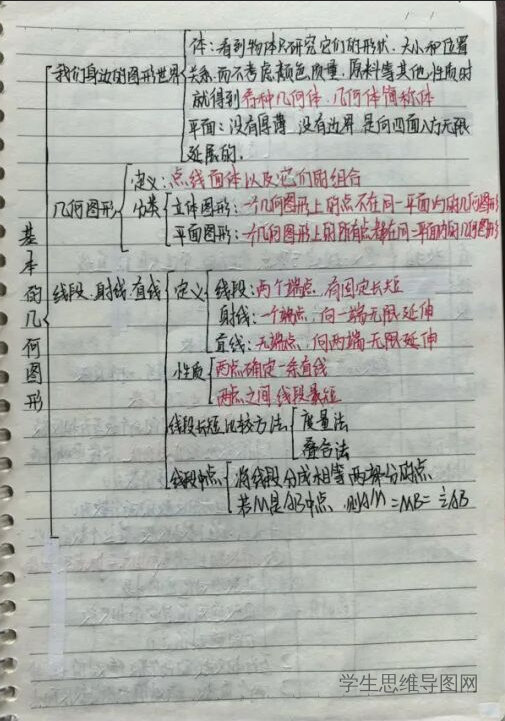 体：看到物体只研究它们的形状、大小和位置
我们身边的图形世界
关系,而不考虑颜色、质量、原料等其他性质时
就得到各种几何体、几何体简称体
平面：没有厚薄,没有边界,是向四面八方无限
延展的.
定义：点线面体以及它们的组合
几何图形
分类
立体图形：一个几何图形上的点不在同一平面内的几何图形
平面图形：一个几何图形上的所有点都在同一平面内的几何图形
基本的几何图形
线段、射线、直线
定义
线段：两个端点,有固定长短
射线：一个端点,向一端无限延伸
直线：无端点,向两端无限延伸
性质
两点确定一条直线
两点之间,线段最短
线段长短比较方法
度量法
叠合法
线段中点
将线段分成相等两部分的点
若M是AB中点,则AM=MB=½AB
学生思维导图网